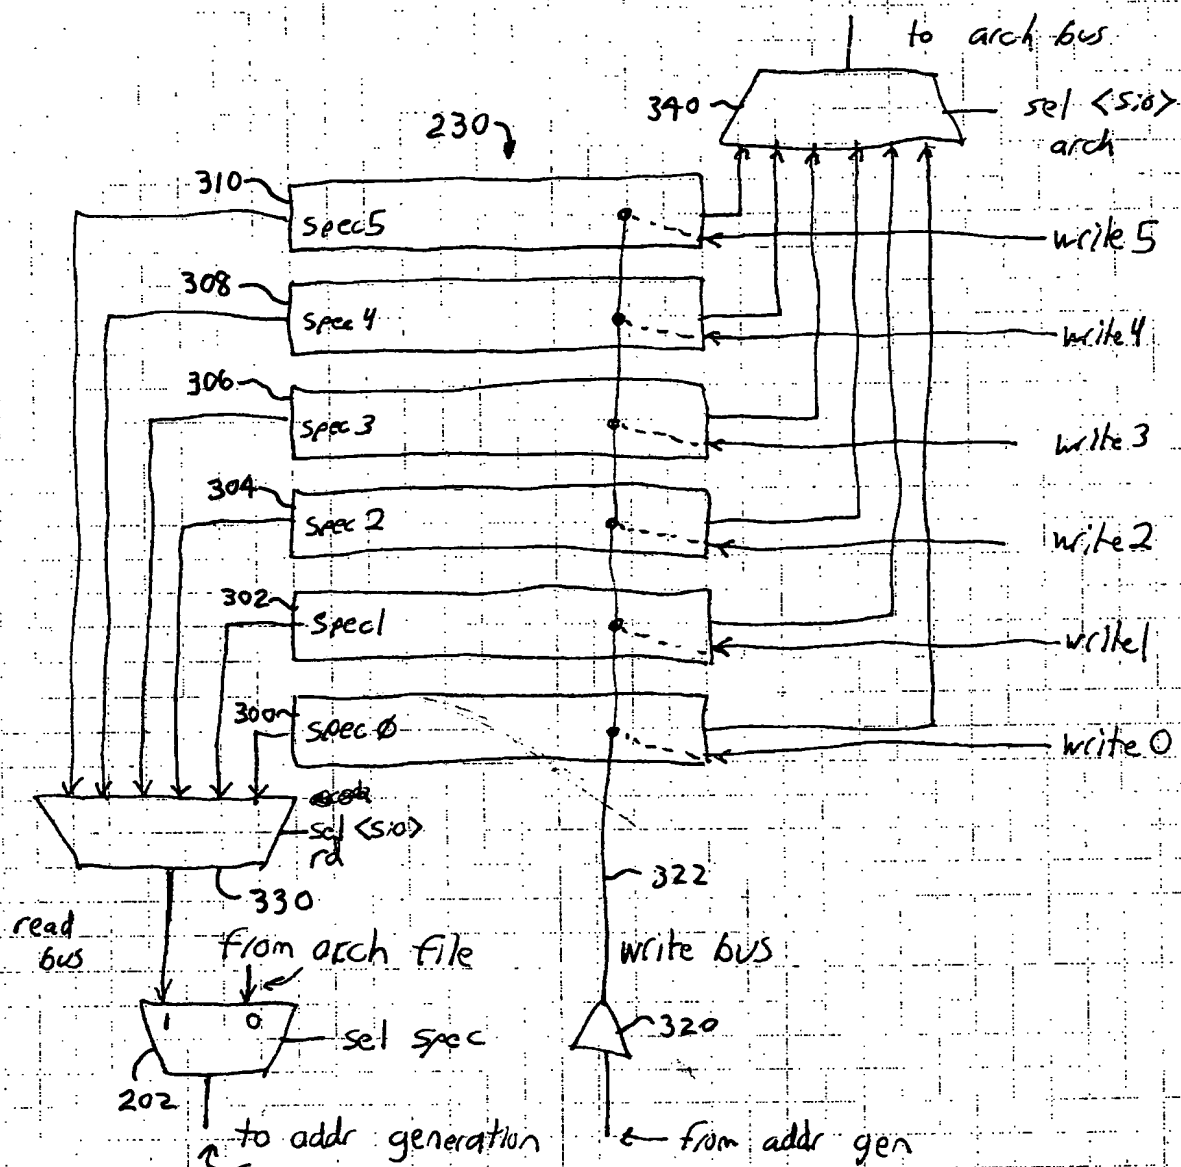 to arch bus
340
sel <sio>
arch
230
310
spec5
write 5
308
spec 4
write 4
306
spec 3
write 3
304
spec 2
write 2
302
spec1
write1
300
spec Ø
write 0
sel <sio>
rd
330
322
read
bus
from arch file
write bus
1 0
sel spec
320
202
to addr generation
from addr gen